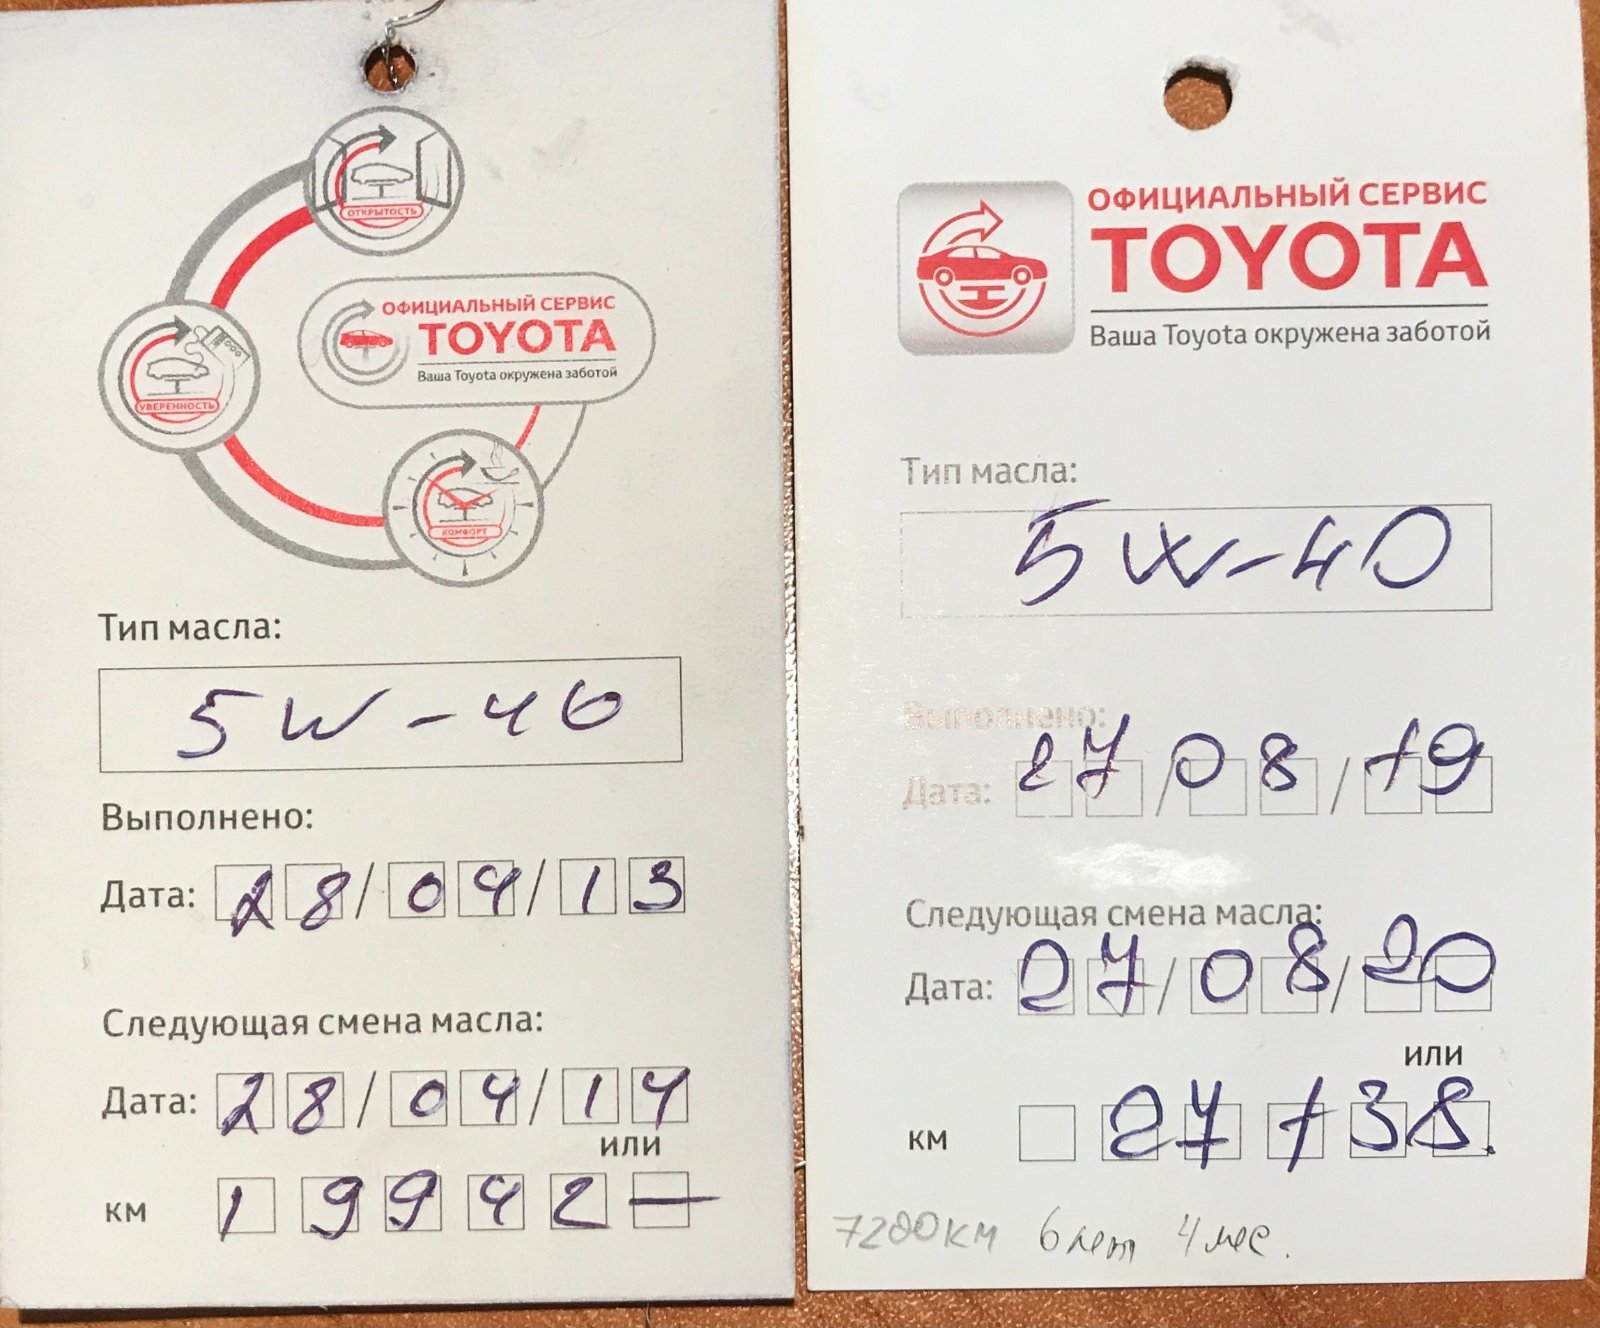 ОТКРЫТОСТЬ
ОФИЦИАЛЬНЫЙ СЕРВИС
TOYOTA
Ваша Toyota окружена заботой
УВЕРЕННОСТЬ
КОМФОРТ
Тип масла:
5W-40
Выполнено:
Дата: 28/04/13
Следующая смена масла:
Дата: 28/04/14
или
км 19942—
ОФИЦИАЛЬНЫЙ СЕРВИС
TOYOTA
Ваша Toyota окружена заботой
Тип масла:
5W-40
Выполнено:
Дата: 27/08/19
Следующая смена масла:
Дата: 27/08/20
или
км 27138.
7200км 6 лет 4 мес.